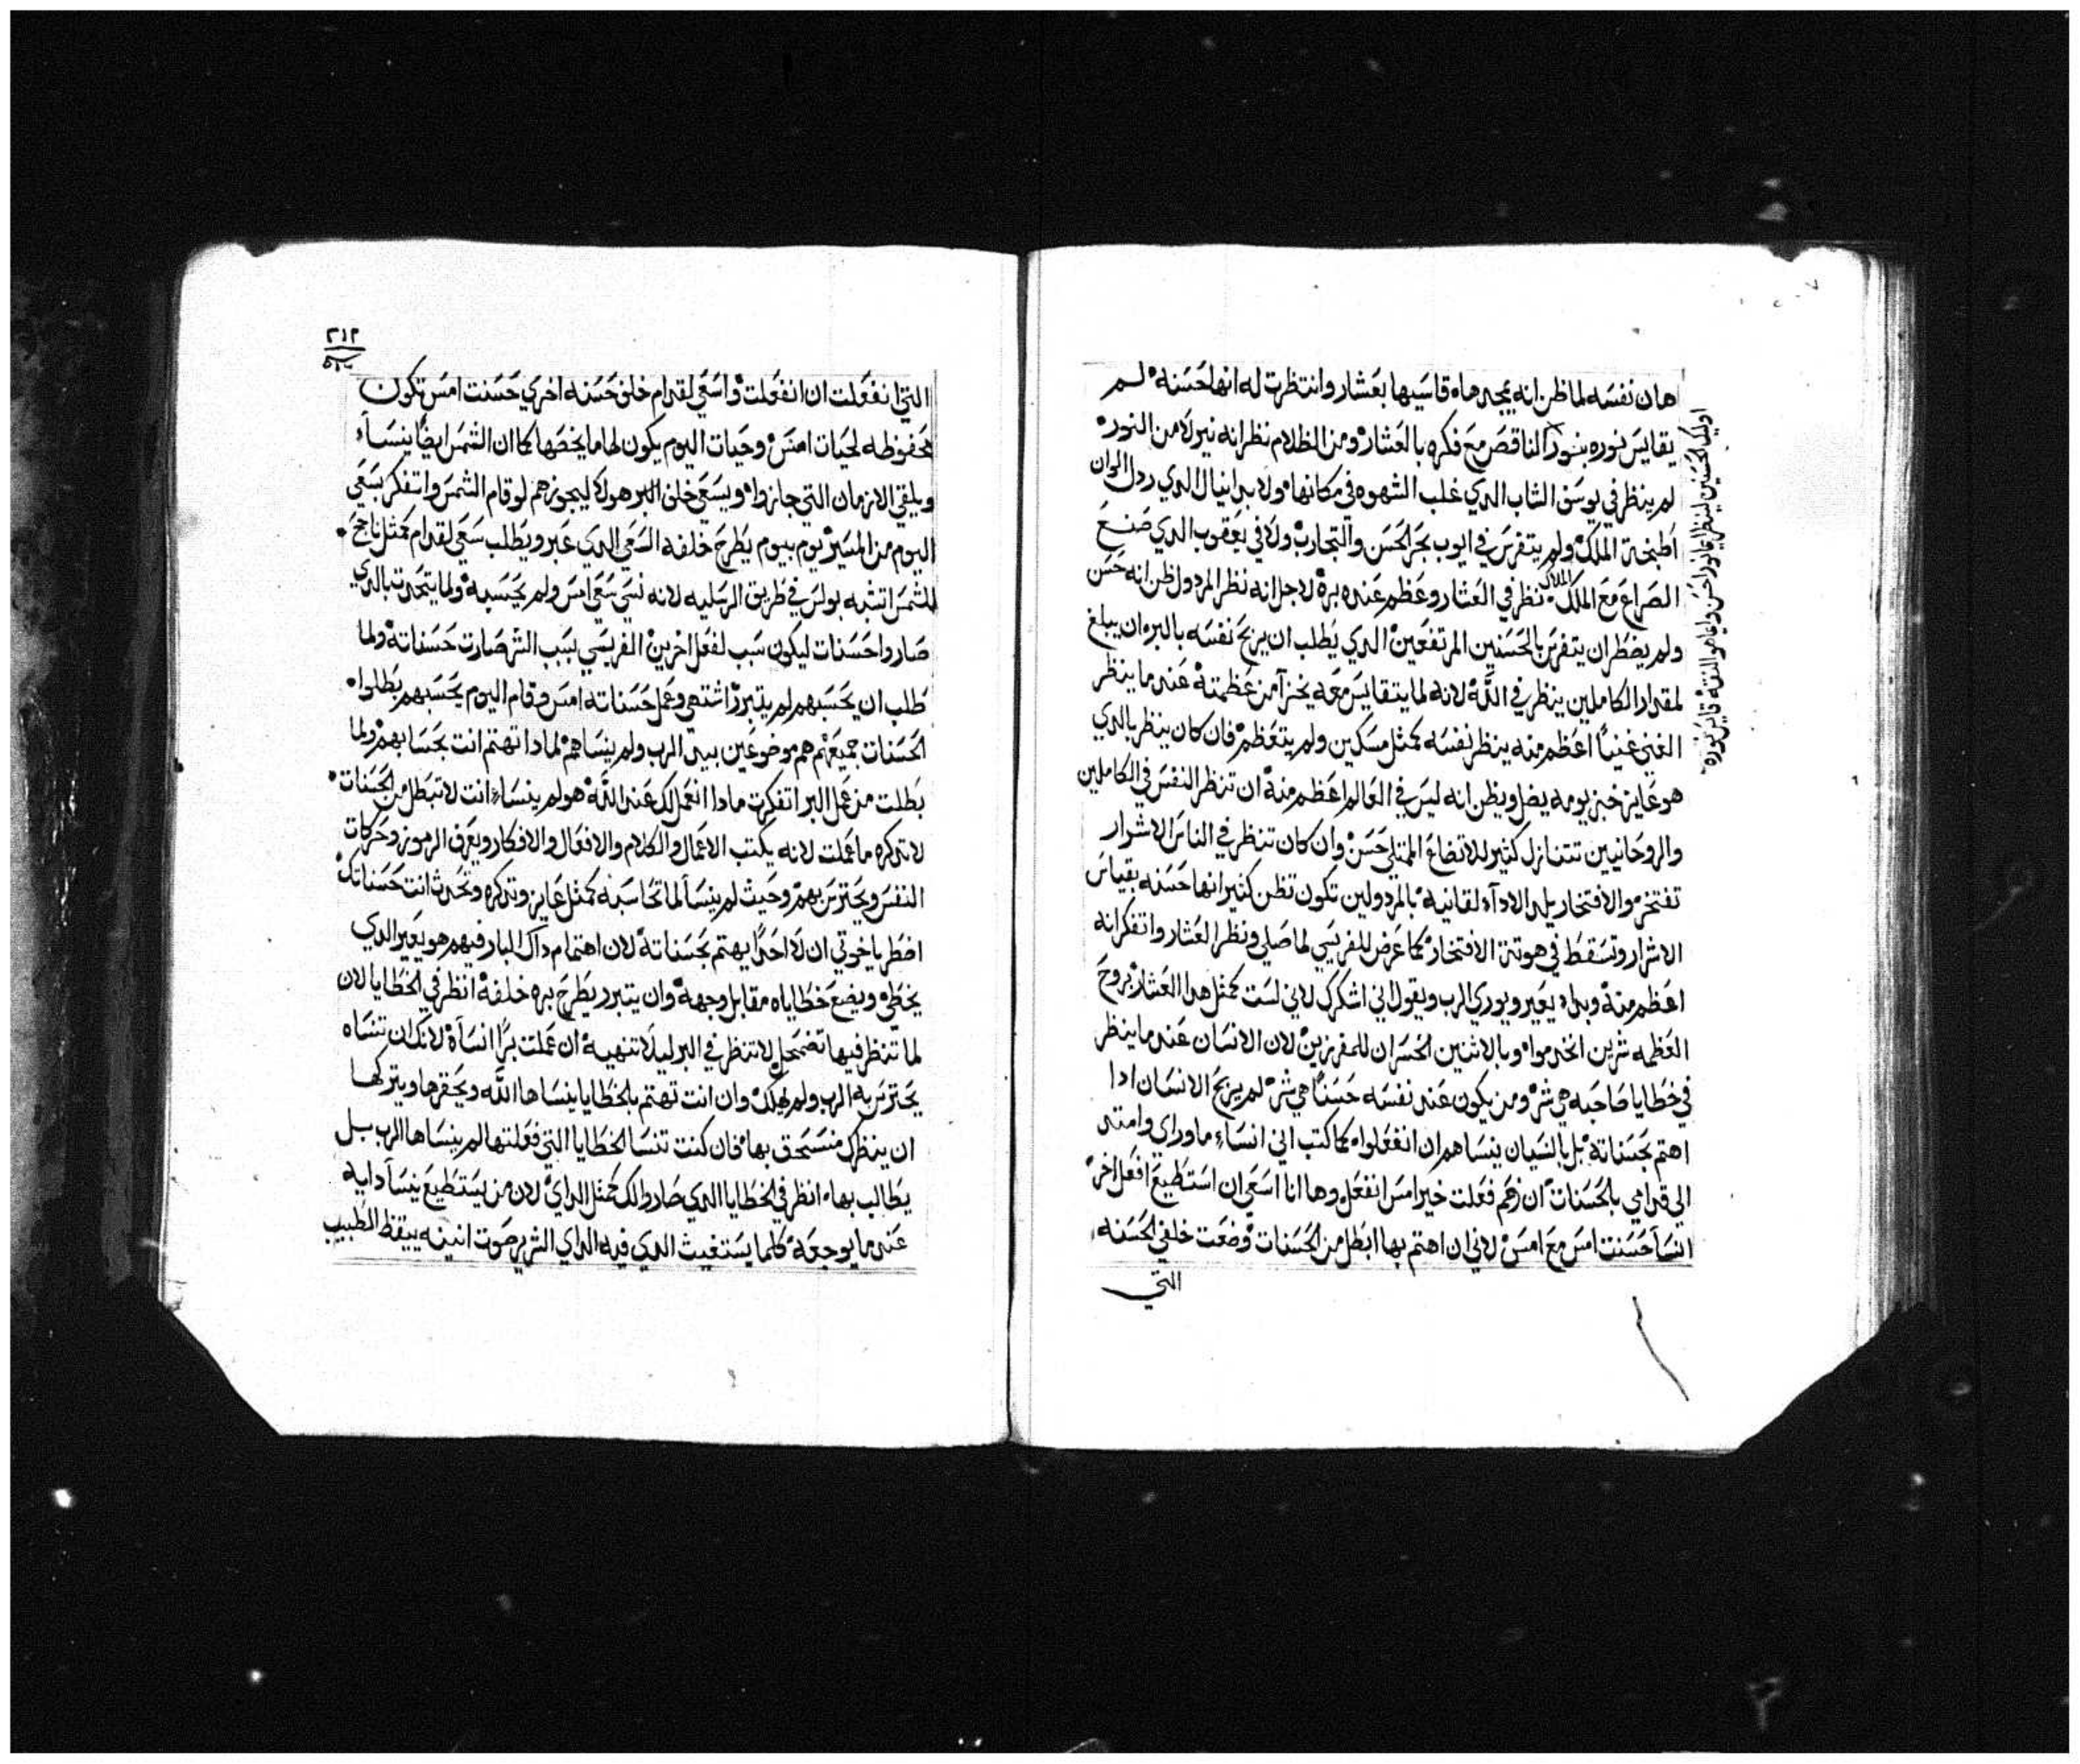 هان نفسه لما ظن انه يمجد هاه قاسيها بعشار وانتظرت له انها حسنه لم
يقايس نوره بنور الناقص مع فكره بالعشار ومن الظلام نظر انه نير لا من النور
لم ينظر في يوسف الشاب الدي غلب الشهوه في مكانها ولا بدانيال الدي ردل الوان
اطبخة الملك ولم يتفرس في ايوب بحر الحسن والتجارب ولا في يعقوب الدي صنع
الصراع مع الملاك نظر في العشار وعظم عنده بره لاجل انه نظر المردول ظن انه حسن
ولم يضطر ان يتفرس بالحسنين المرتفعين الدي يطلب ان يربح نفسه بالبر ان يبلغ
لمقدار الكاملين ينظر في الله لانه لما يتقايس معه يخزا من عظمته عند ما ينظر
الغني غنياً اعظم منه ينظر نفسه كمثل مسكين ولم يتعظم فان كان ينظر بالدي
هو عايز خبز يومه يضل ويظن انه ليس في العالم اعظم منه ان تنظر النفس في الكاملين
والروحانيين تتنازل كثير للاتضاع الممتلي حسن وان كان تنظر في الناس الاشرار
تفتخر والافتخار يلد الادآء لقانيه بالمردولين تكون تظن كثير انها حسنه بقياس
الاشرار وتسقط في هوتة الافتخار كما عرض للفريسي لما صلي ونظر العشار واتفكر انه
اعظم منه وبداء يعير ويوري الرب ويقول اني اشكرك لاني لست كمثل هدا العشار بروح
العظمه شرين اتخدموا وبالاثنين الخسران للمفرزين لان الانسان عند ما ينظر
في خطايا صاحبه هي شر ومن يكون عند نفسه حسناً هي شر لم يربح الانسان ادا
اهتم بحسناته بل بالنسيان ينساهم ان انفعلوا كما كتب اني انساء ما وراي وامتد
الي قدامي بالحسنات ان زهم فعلت خير امس انفعل وها انا اسعي ان استطيع افعل اخر
انسا حسنت امس مع امس لاني ان اهتم بها ابطل من الحسنات وضعت خلفي الحسنه
التي
٢١٢
التي انفعلت ان انفعلت واسعي لقدام خلف حسنه اخري حسنت امس تكون
محفوظه لحيات امس وحيات اليوم يكون لها ما يخصها كما ان الشمس ايضاً ينساء
ويلقي الازمان التي جازوا ويسعي خلف البر هولا ليجوزهم لو قام الشمس واتفكر بسعي
اليوم من المسير يوم بيوم يطرح خلفه السعي الدي عبر ويطلب سعي لقدام كمثل ناجح
للشمس اتشبه بولس في طريق الرسليه لانه نسي سعي امس ولم يحسبه ولما يتحدت بالدي
صاروا حسنات ليكون سبب لفعل اخرين الفريسي بسبب الشر صارت حسناته ولما
طلب ان يحسبهم لم يتبرر اشتهي وعمل حسناته امس وقام اليوم يحسبهم بطلوا
الحسنات جميعهم هم موضوعين بيد الرب ولم ينساهم لمادا تهتم انت بحسابهم ولما
بطلت من عمل البر اتفكرت مادا انعمل لك عند الله هو لم ينساء انت لا تبطل من الحسنات
لا تدكره ما عملت لانه يكتب الاعمال والكلام والافعال والافكار ويعرف الرموز وحركات
النفس ويحترس بهم وحيث لم ينسا لما تحاسبه كمثل عايز وتدكره وتحدث انت حسناتك
افطر ياخوتي ان لا احداً يهتم بحسناته لان اهتمام داك البار فيهم هو يعير الدي
يخطي ويضع خطاياه مقابل وجهه وان يتبرر يطرح بره خلفه انظر في الخطايا لان
لما تنظر فيها تضمحل لا تنظر في البر ليلا تنهيه ان عملت براً انساه لانك ان تنساه
يحترس به الرب ولم يهلك وان انت تهتم بالخطايا ينساها الله ويحقرها ويتركها
ان ينظرك منسحق بها فان كنت تنسا الخطايا التي فعلتها لم ينساها الرب بل
يطالب بها انظر في الخطايا الدي صاروا لك كمثل الداي لان من يستطيع ينسا دايه
عند ما يوجعه كلما يستغيث الدي فيه الداي الشرير صوت انينه ييقظ الطبيب